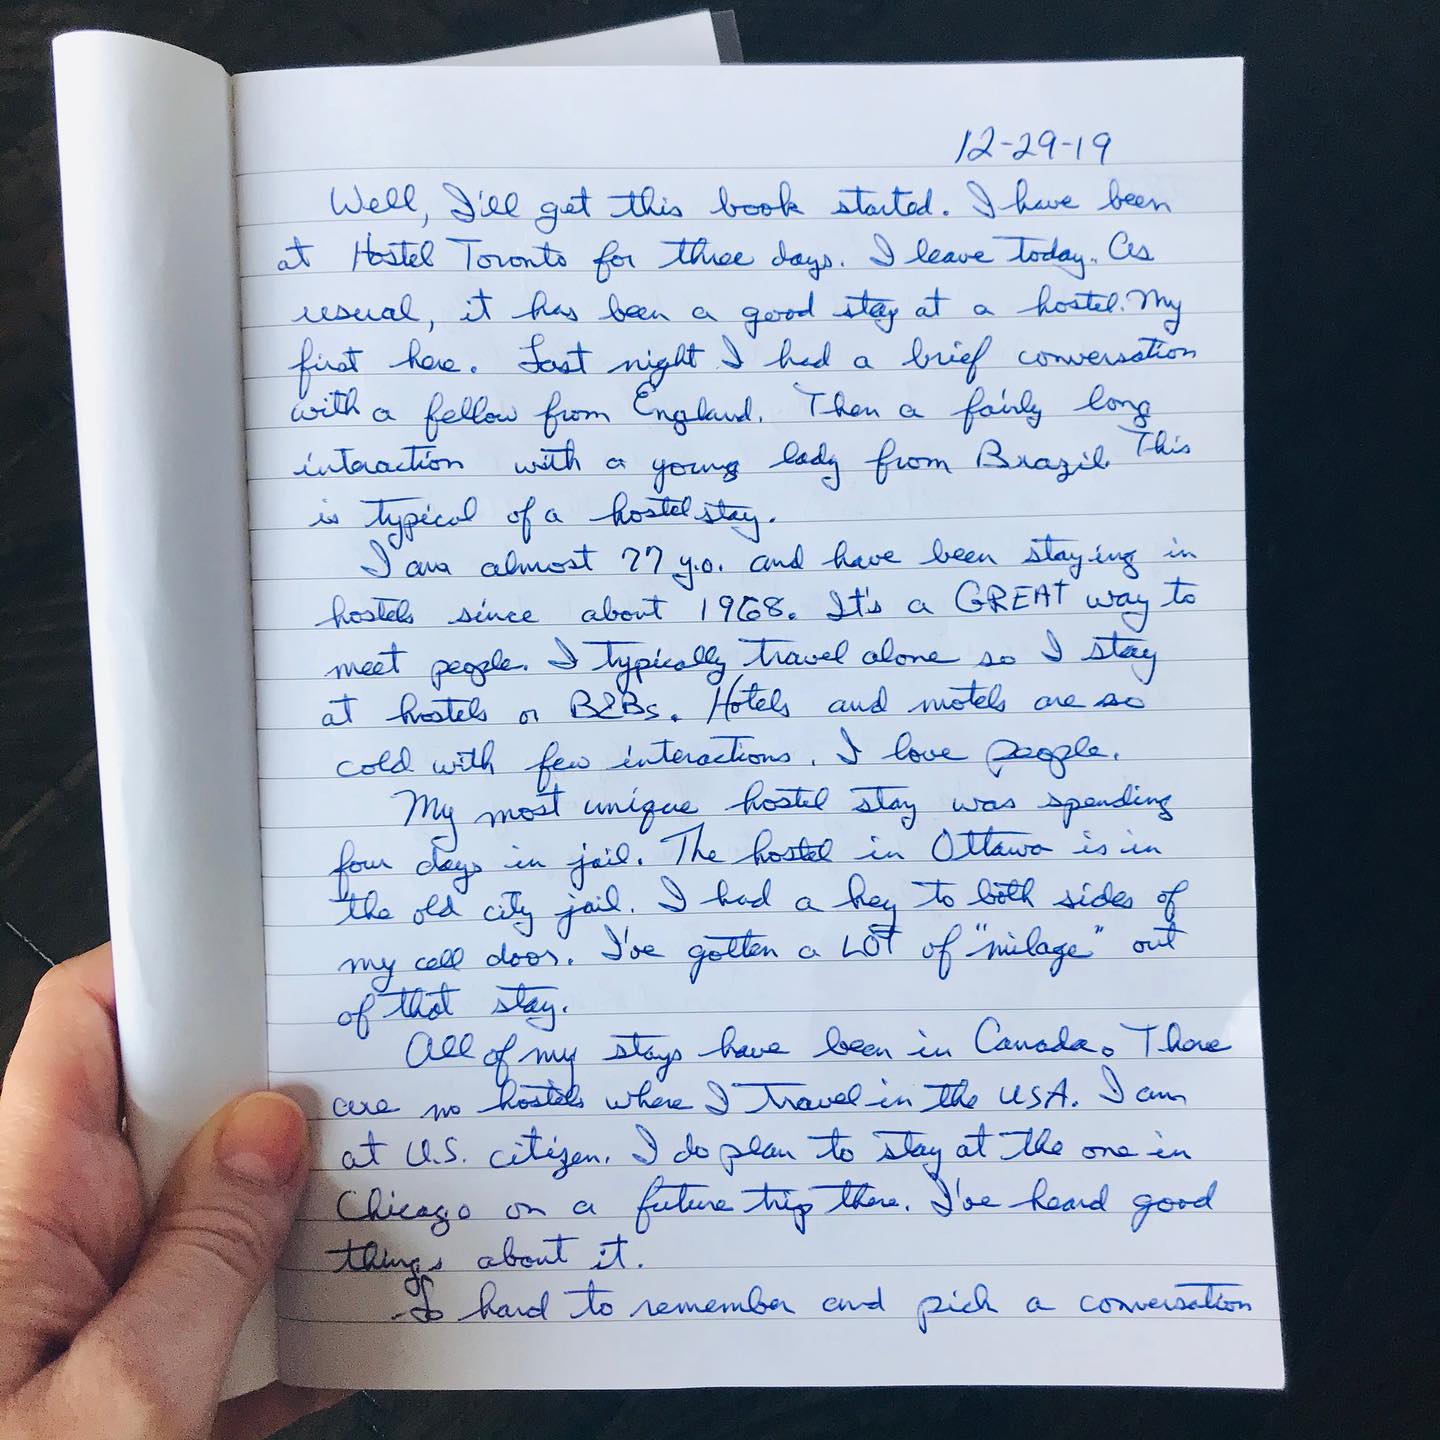 12-29-19
Well, I'll get this book started. I have been
at Hostel Toronto for three days. I leave today. As
usual, it has been a good stay at a hostel. My
first here. Last night I had a brief conversation
with a fellow from England. Then a fairly long
interaction with a young lady from Brazil. This
is typical of a hostel stay.
I am almost 77 y.o. and have been staying in
hostels since about 1968. It's a GREAT way to
meet people. I typically travel alone so I stay
at hostels or B&Bs. Hotels and motels are so
cold with few interactions. I love people.
My most unique hostel stay was spending
four days in jail. The hostel in Ottawa is in
the old city jail. I had a key to both sides of
my cell door. I've gotten a LOT of "milage" out
of that stay.
All of my stays have been in Canada. There
are no hostels where I travel in the USA. I am
at U.S. citizen. I do plan to stay at the one in
Chicago on a future trip there. I've heard good
things about it.
So hard to remember and pick a conversation